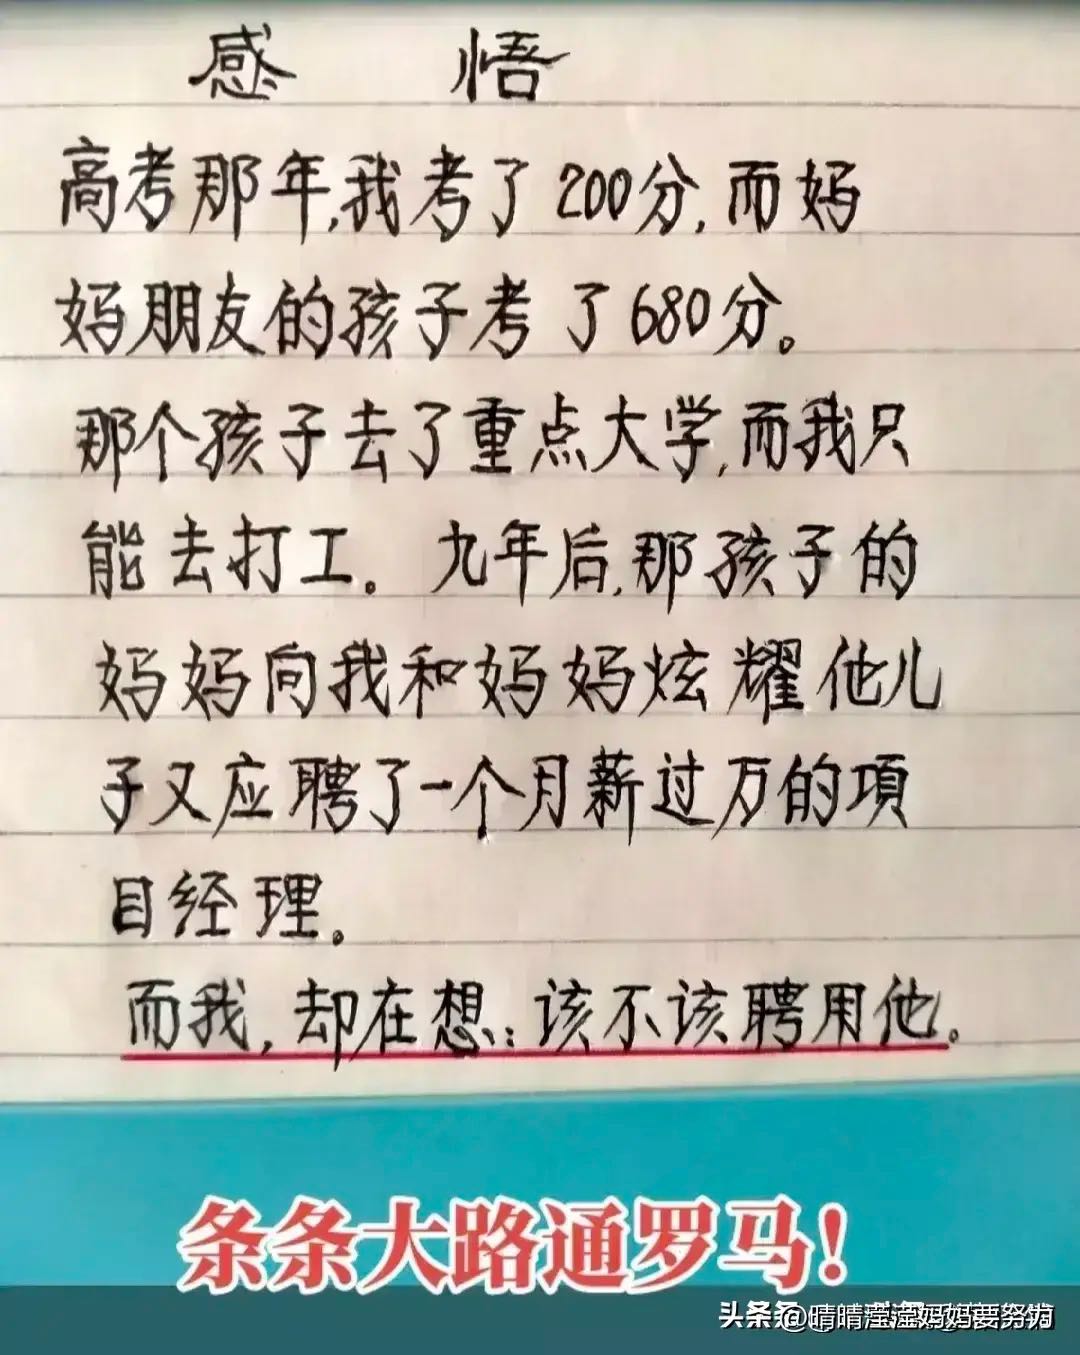 感 悟
高考那年,我考了200分,而妈
妈朋友的孩子考了680分。
那个孩子去了重点大学,而我只
能去打工。九年后,那孩子的
妈妈向我和妈妈炫耀他儿
子又应聘了一个月薪过万的項
目经理。
而我,却在想:该不该聘用他。
条条大路通罗马!
头条@晴晴滢滢妈妈要努力